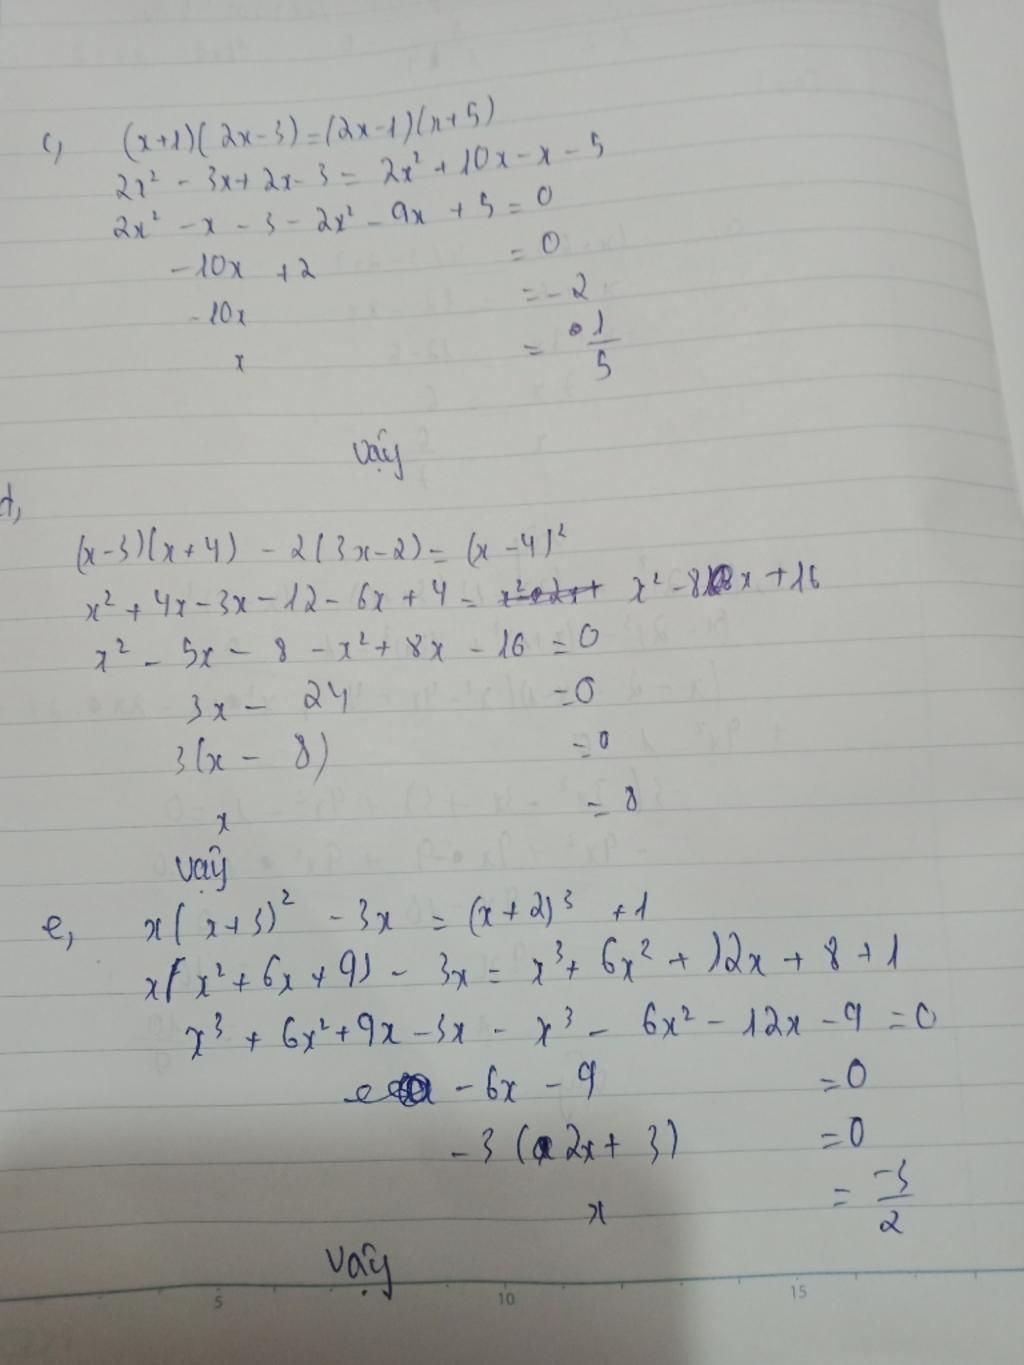 c, (x+1)(2x-3)=(2x-1)(x+5)
2x² - 3x+2x-3 = 2x² + 10x - x - 5
2x² - x - 3 - 2x² - 9x + 5 = 0
-10x + 2 = 0
-10x = -2
x = 1/5
Vậy
d,
(x-3)(x+4) - 2(3x-2) = (x-4)²
x² + 4x - 3x - 12 - 6x + 4 = x² - 8x + 16
x² - 5x - 8 - x² + 8x - 16 = 0
3x - 24 = 0
3(x - 8) = 0
x = 8
Vậy
e, x(x+3)² - 3x = (x+2)³ + 1
x(x² + 6x + 9) - 3x = x³ + 6x² + 12x + 8 + 1
x³ + 6x² + 9x - 3x - x³ - 6x² - 12x - 9 = 0
- 6x - 9 = 0
-3(2x + 3) = 0
x = -3/2
Vậy
5 10 15